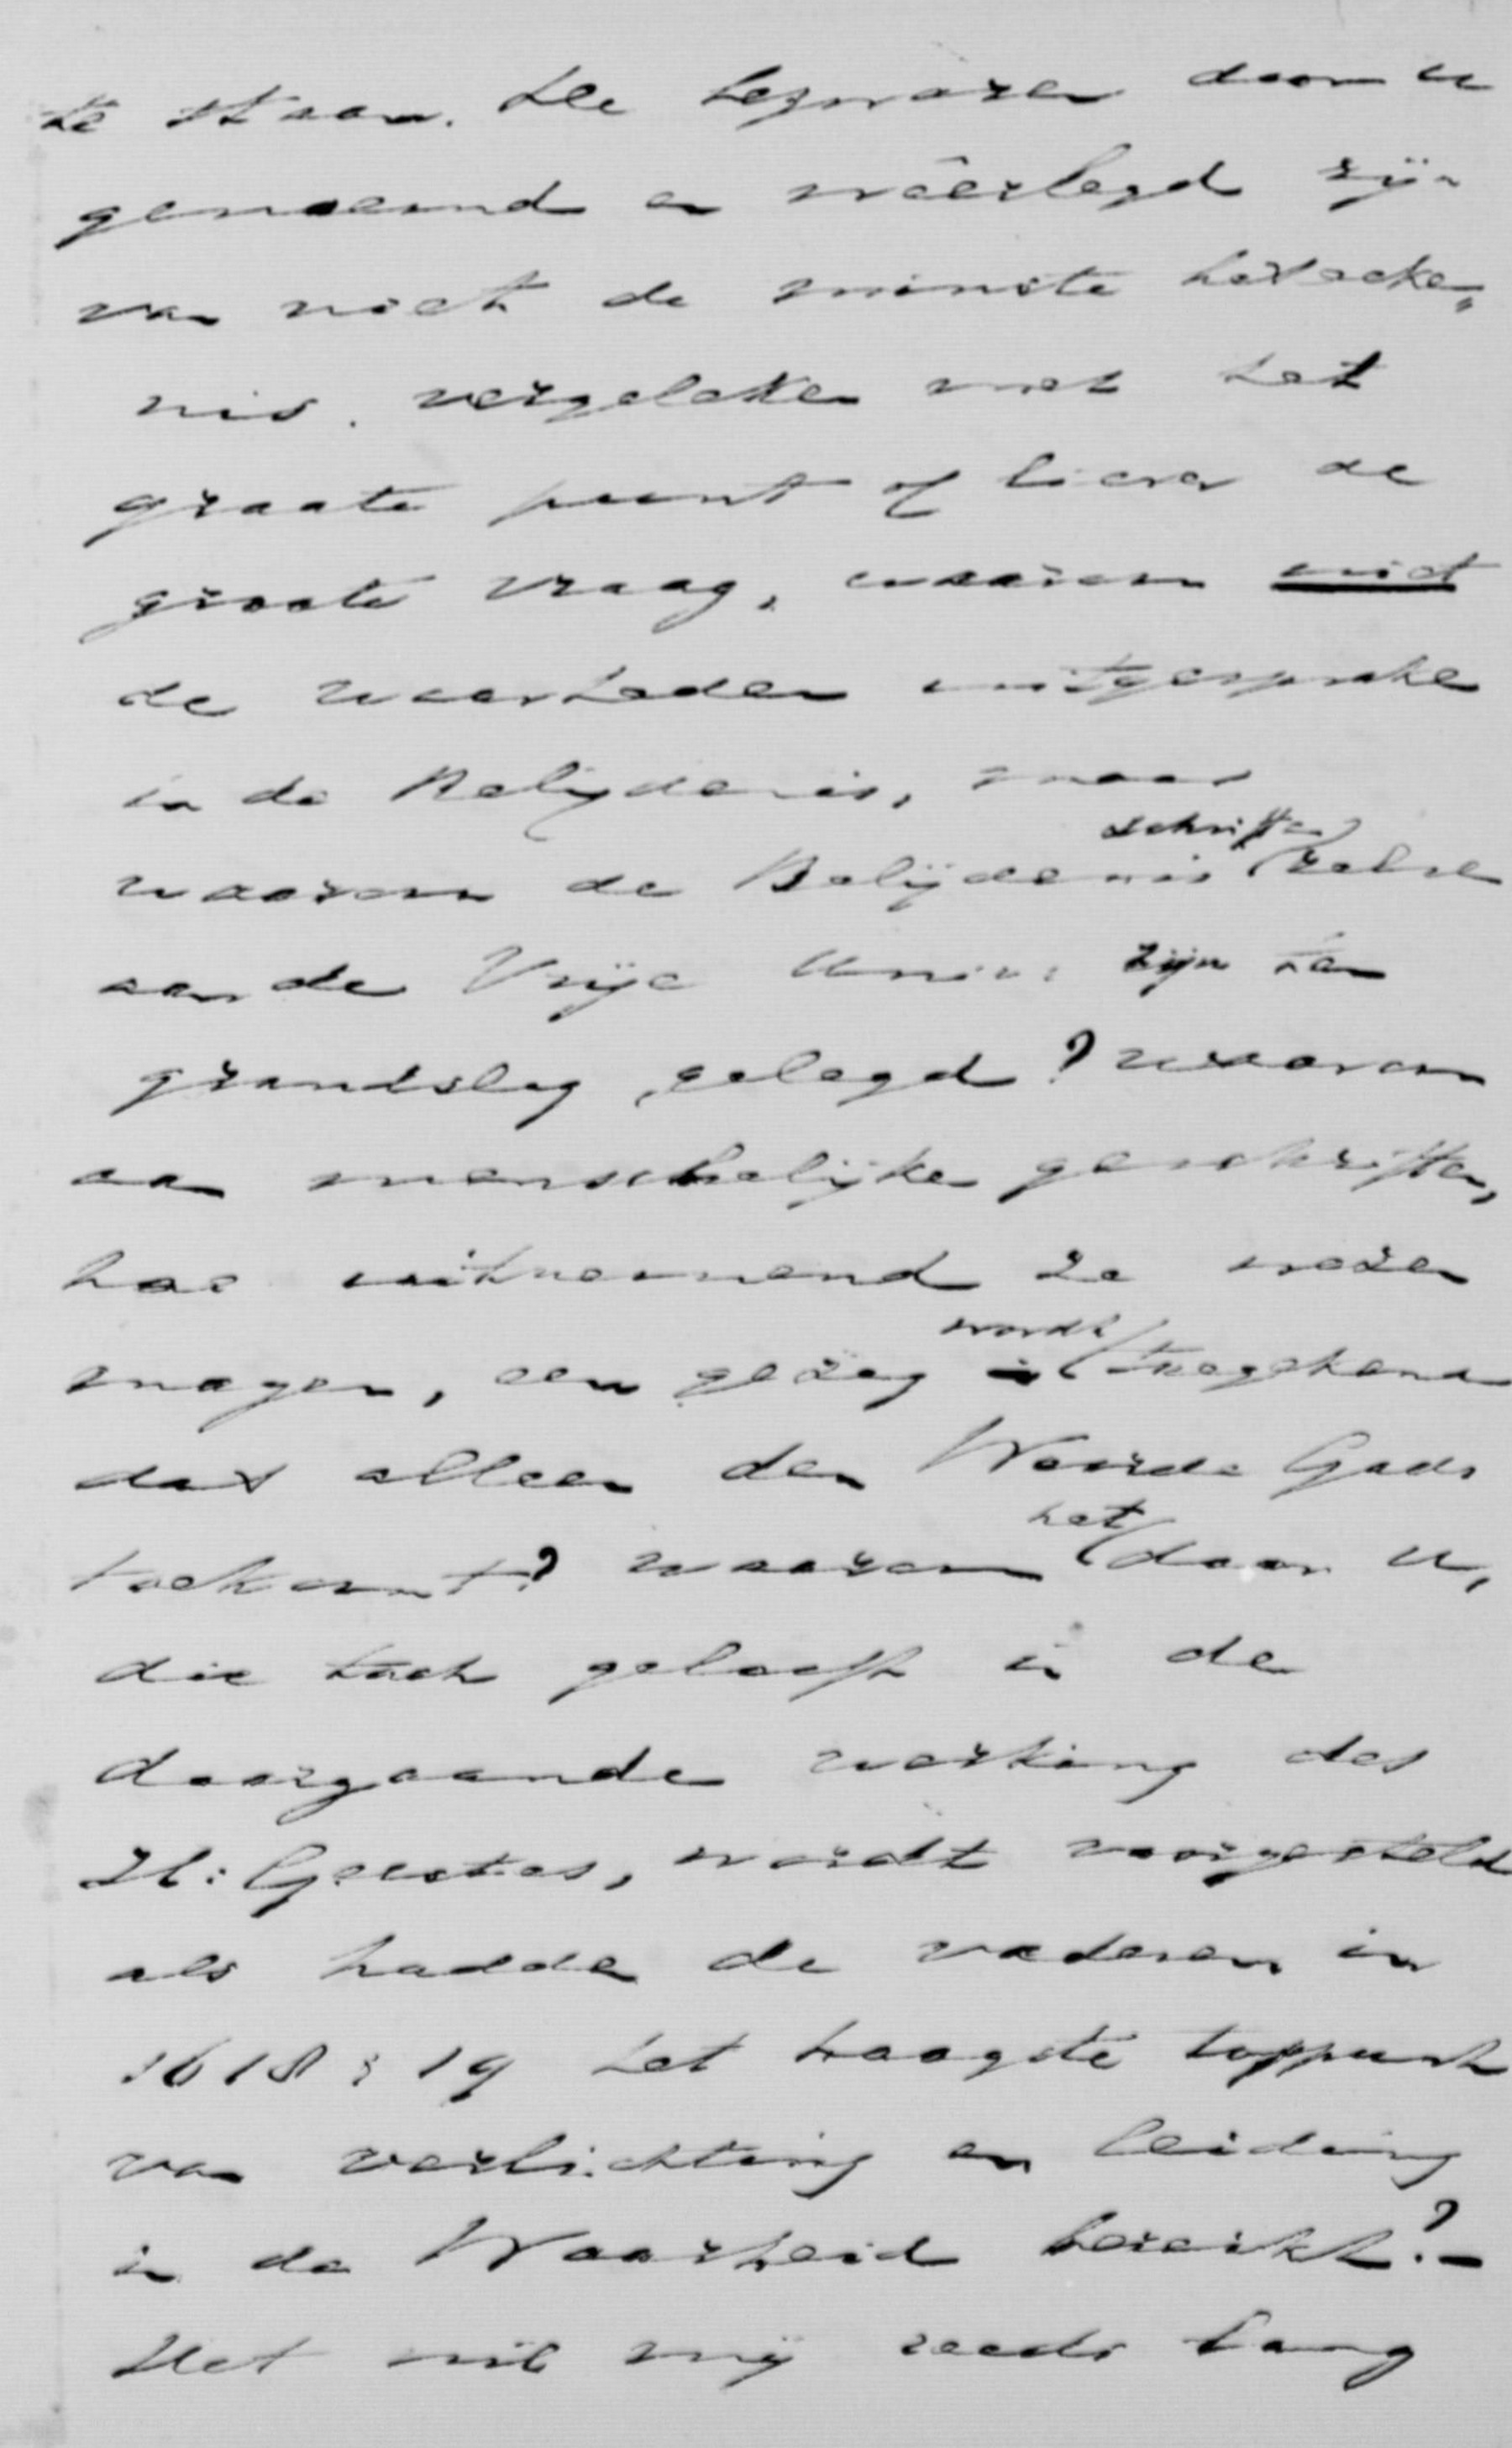 te staan. De bezwaren door u
genoemd en weêrlegd zijn
van niet de minste beteeke„
nis, vergeleken met het
groote punt of liever de
groote vraag, waarom niet
de waarheden uitgesproken
in de Belijdenis, maar
waarom de Belijdenisschriften zelve
aan de Vrije Univ: zijn ten
grondslag gelegd? waarom
aan menschelijke geschriften,
hoe uitnemend ze wezen
mogen, een gezag wordt toegekend
dat alleen den Woorde Gods
toekomt? waarom het door u,
die toch gelooft in de
doorgaande werking des
H: Geestes, wordt voorgesteld
als hadden de vaderen in
1618 & 19 het hoogste toppunt
van verlichting en leiding
in de Waarheid bereikt?—
Het wil mij reeds lang